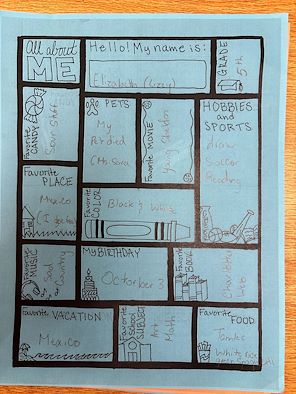 All about
ME
Hello! My name is:
Elizabeth (Lizzy)
GRADE
5th
Favorite
CANDY
Sour Stuff
PETS
My
Pet died
Favorite MOVIE
Young Sheldon
HOBBIES
and
SPORTS
draw
Soccer
Reading
Favorite
PLACE
Mexico
Favorite
COLOR
Black & White
Favorite
MUSIC
Sad
Country
My BIRTHDAY
October 3
Favorite
BOOK
Charlotte's
Web
Favorite VACATION
Mexico
Favorite
School
SUBJECT
Art
Math
Favorite
FOOD
Tamales
White rice